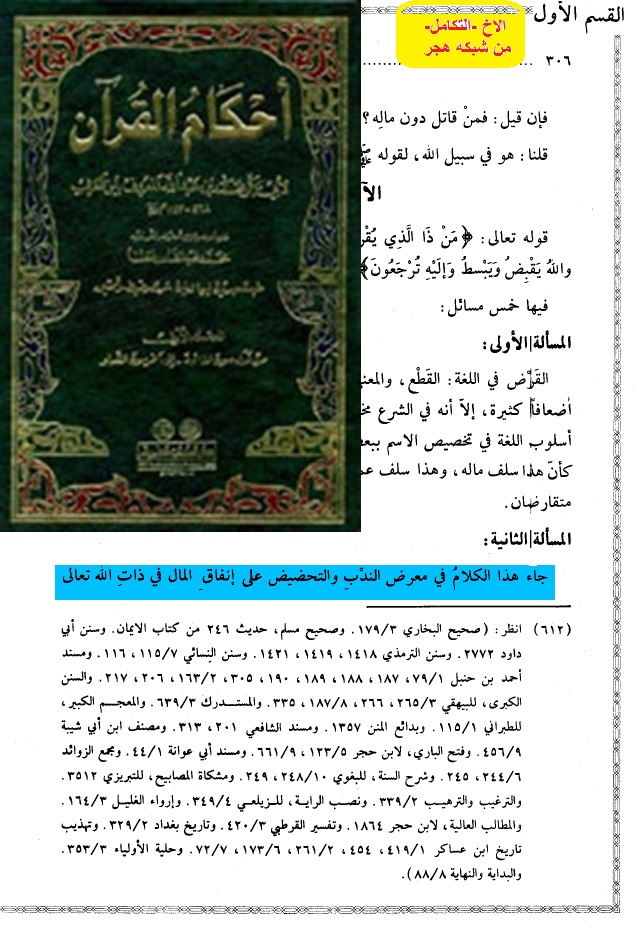 القسم الأول
الاخ -التكامل-
من شبكه هجر
٣٠٦
أحكام القرآن
فإن قيل: فمنْ قاتل دون مالِه؟
قلنا: هو في سبيل الله، لقوله ﷺ
الآ
قوله تعالى: ﴿مَنْ ذَا الَّذِي يُقْر
واللهُ يَقْبِضُ وَيَبْسطُ وَإلَيْهِ تُرْجَعُونَ﴾
فيها خمس مسائل:
المسألة الأولى:
القَرْض في اللغة: القَطْع، والمعن
أضعافاً كثيرة، إلاّ أنه في الشرع مخ
أسلوب اللغة في تخصيص الاسم ببعض
كأنّ هذا سلف ماله، وهذا سلف عم
متقارضان.
المسألة الثانية:
جاء هذا الكلامُ في معرض الندْبِ والتحضيض على إنفاقِ المال في ذاتِ الله تعالى
(٦١٢) انظر: (صحيح البخاري ١٧٩/٣. وصحيح مسلم، حديث ٢٤٦ من كتاب الايمان. وسنن أبي
داود ٢٧٧٢. وسنن الترمذي ١٤١٨، ١٤١٩، ١٤٢١. وسنن النسائي ١١٥/٧، ١١٦. ومسند
أحمد بن حنبل ٧٩/١، ١٨٧، ١٨٨، ١٨٩، ١٩٠، ٣٠٥، ١٦٣/٢، ٢٠٦، ٢١٧. والسنن
الكبرى، للبيهقي ٢٦٥/٣، ٢٦٦، ١٨٧/٨، ٣٣٥. والمستدرك ٦٣٩/٣. والمعجم الكبير،
للطبراني ١١٥/١. وبدائع المنن ١٣٥٧. ومسند الشافعي ٢٠١، ٣١٣. ومصنف ابن أبي شيبة
٤٥٦/٩. وفتح الباري، لابن حجر ١٢٣/٥، ٦٦١/٩. ومسند أبي عوانة ٤٤/١. ومجمع الزوائد
٢٤٤/٦، ٢٤٥. وشرح السنة، للبغوي ٢٤٨/١٠، ٢٤٩. ومشكاة المصابيح، للتبريزي ٣٥١٢.
والترغيب والترهيب ٣٣٩/٢. ونصب الراية، للزيلعي ٣٤٩/٤. وإرواء الغليل ١٦٤/٣.
والمطالب العالية، لابن حجر ١٨٦٤. وتفسير القرطبي ٤٢٠/٣. وتاريخ بغداد ٣٢٩/٢. وتهذيب
تاريخ ابن عساكر ٤١٩/١، ٤٥٤، ٢٦١/٢، ١٧٣/٦، ٧٢/٧. وحلية الأولياء ٣٥٣/٣.
والبداية والنهاية ٨٨/٨).